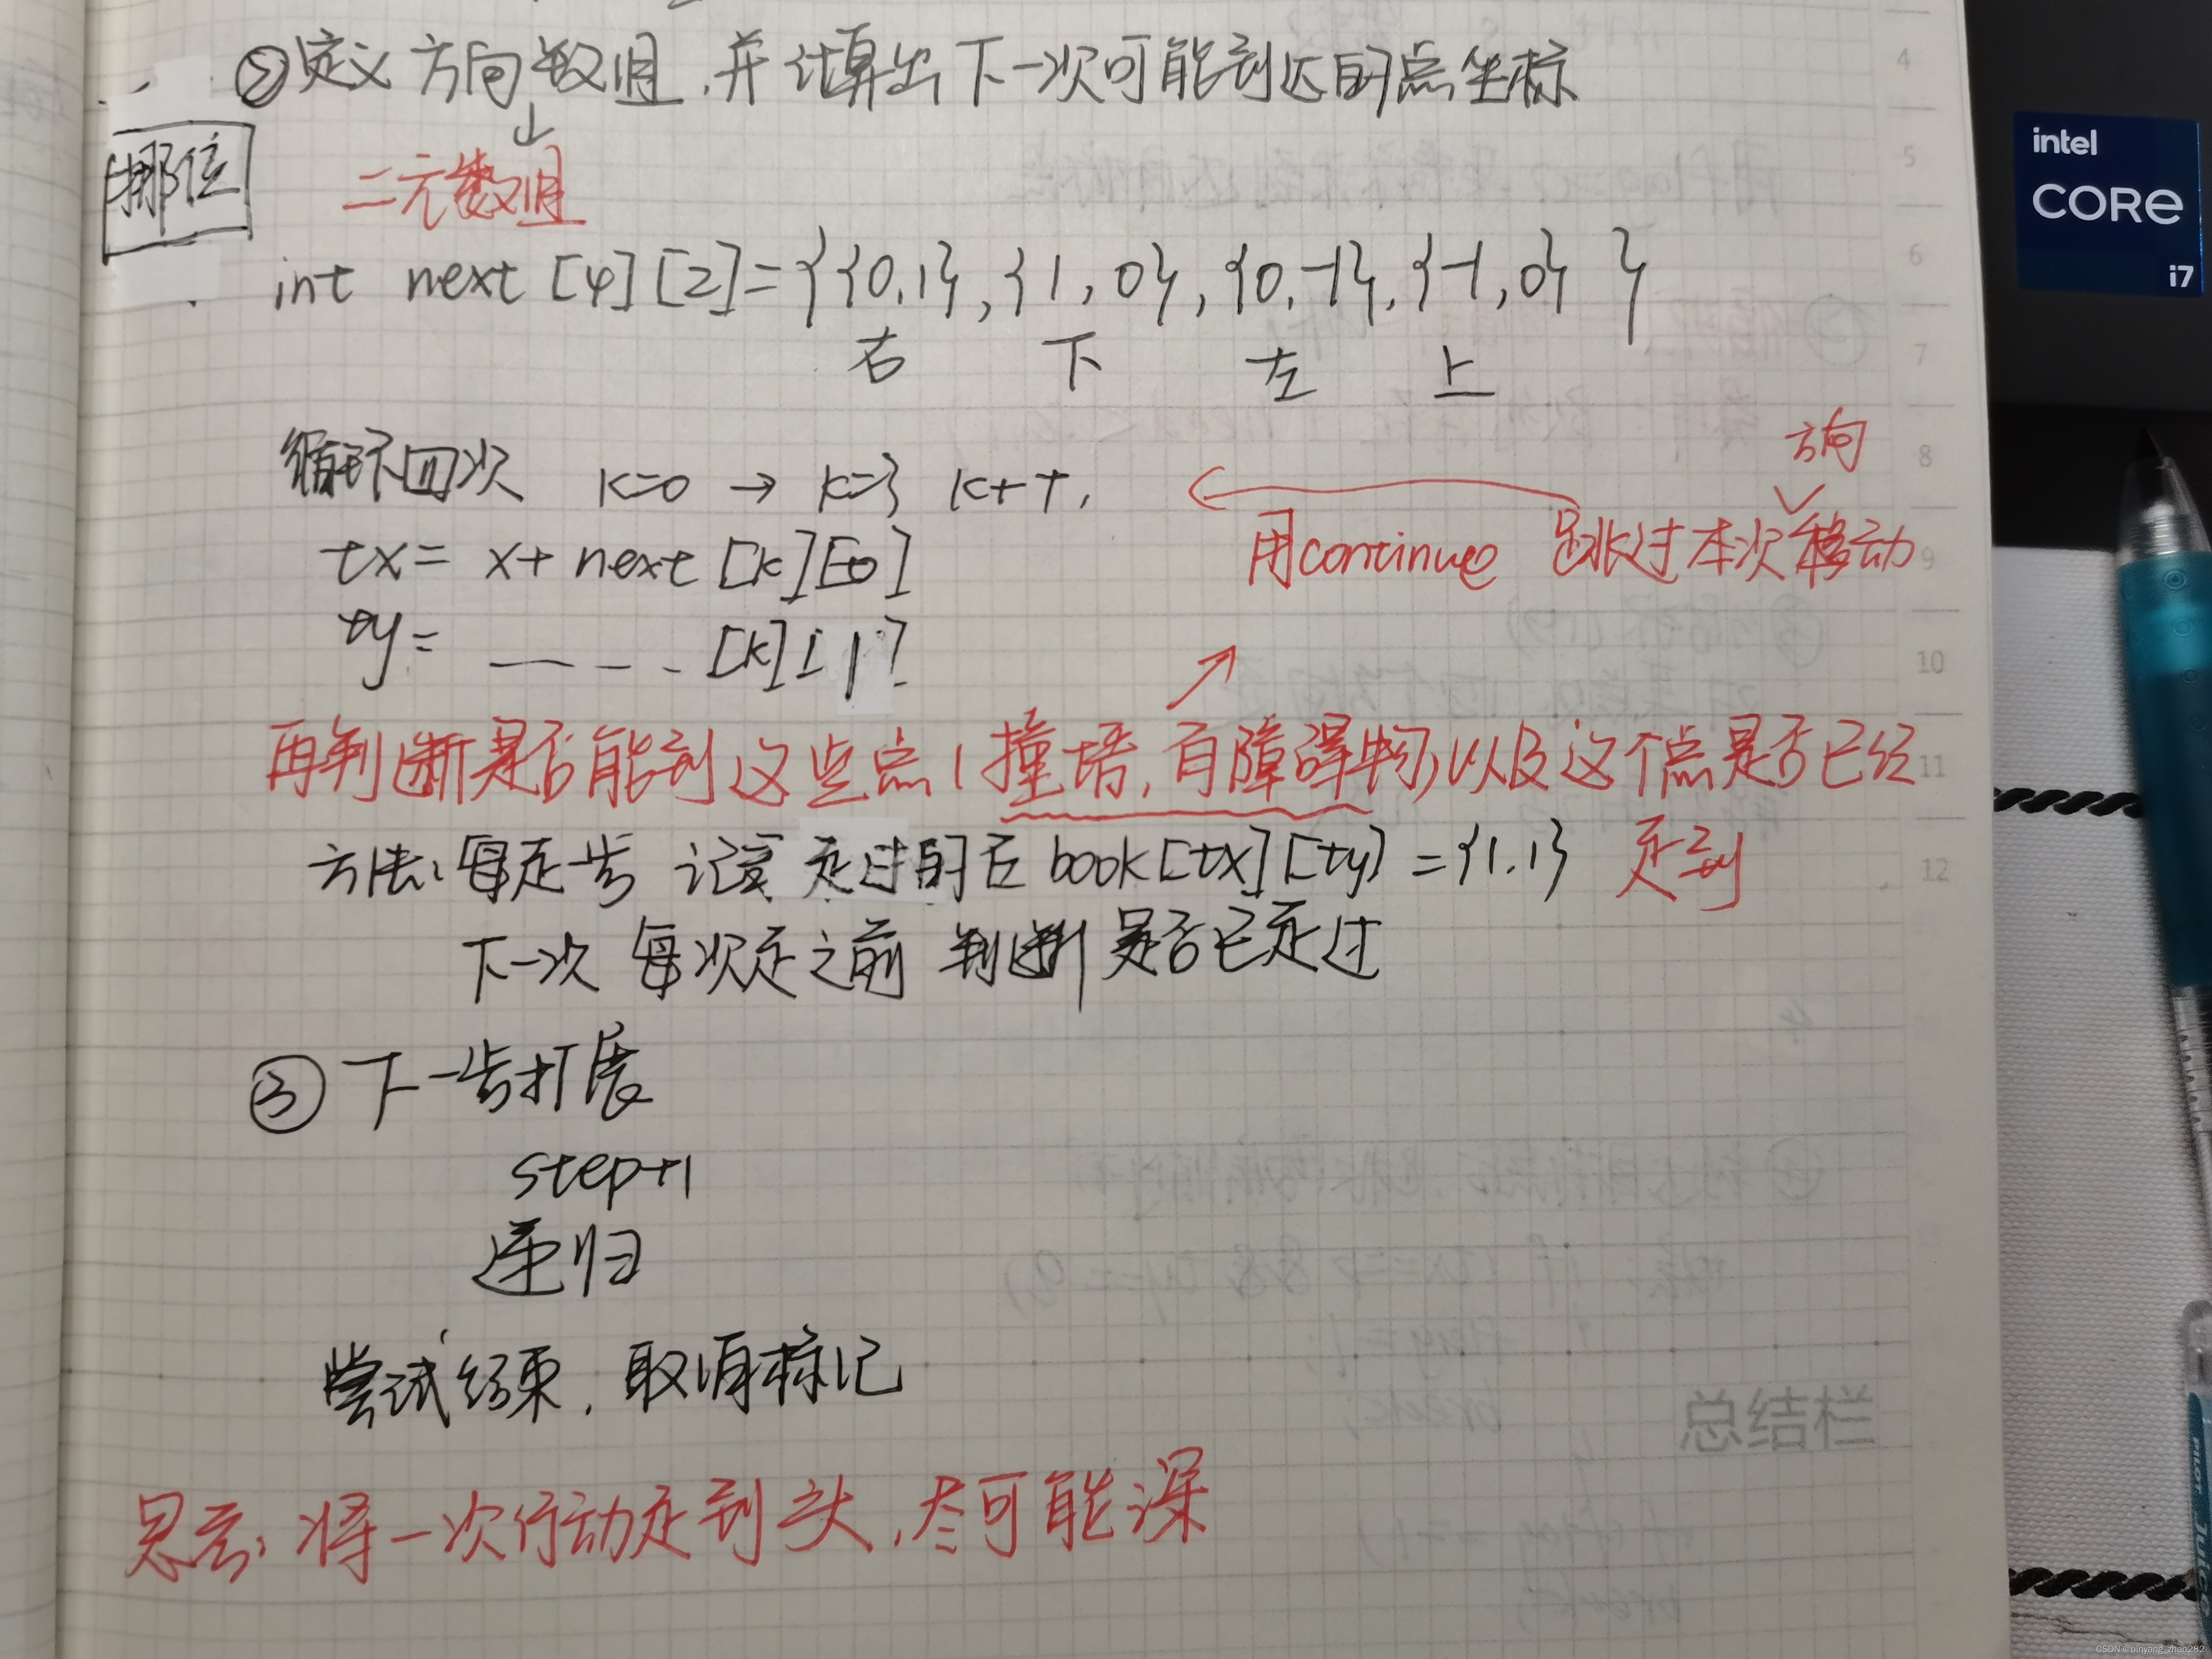 ②定义方向数组,并计算出下一次可能到达的点坐标
↓
挪位
二元数组
int next [4][2]={{0,1},{1,0},{0,-1},{-1,0} }
右 下 左 上
循环四次 k=0 → k=3 k++,
方向
用continue 跳过本次移动
tx= x+ next [k][0]
ty= — - - - [k][1]
再判断是否能到这些点(撞墙,有障碍物)以及这个点是否已经
走到
方法:每走步 记录走过的 book[tx][ty] ={1,1}
下一次 每次走之前 判断 是否已走过
③下一步拓展
step+1
递归
尝试结束,取消标记
思云:将一次行动走到头,尽可能深
总结栏
4
5
6
7
8
9
10
11
12
intel
CORE
i7
PILOT JUICE
CSDN @binyang_zhao282